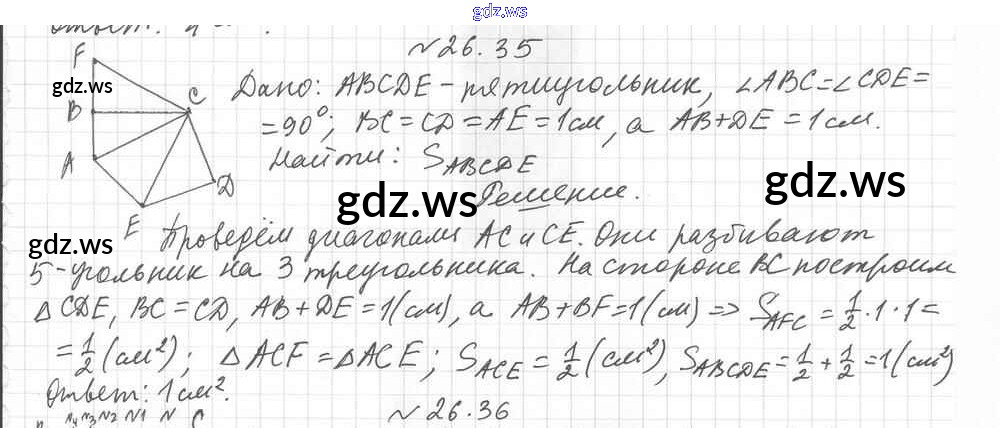 gdz.ws
№26.35
F
gdz.ws
B
C
A
D
E
Дано: ABCDE - пятиугольник, ∠ABC=∠CDE=
=90⁰; BC=CD=AE=1см, а AB+DE=1см.
Найти: S_ABCDE
gdz.ws
gdz.ws
Решение.
gdz.ws
Проведём диагонали AC и CE. Они разбивают
5-угольник на 3 треугольника. На стороне BC построим
△CDE, BC=CD, AB+DE=1(см), а AB+BF=1(см) => S_AFC = 1/2·1·1=
=1/2(см²); △ACF=△ACE; S_ACE=1/2(см²), S_ABCDE=1/2+1/2=1(см²)
Ответ: 1см².
№26.36